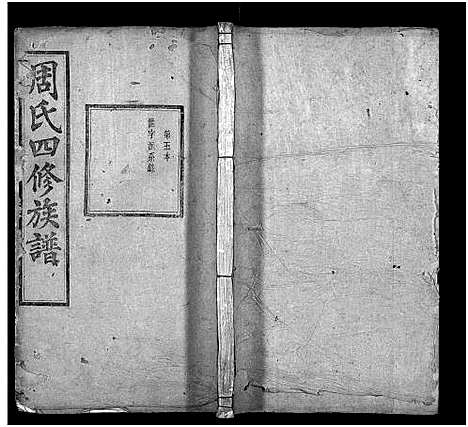 周氏四修族譜
第五本
世字派系錄